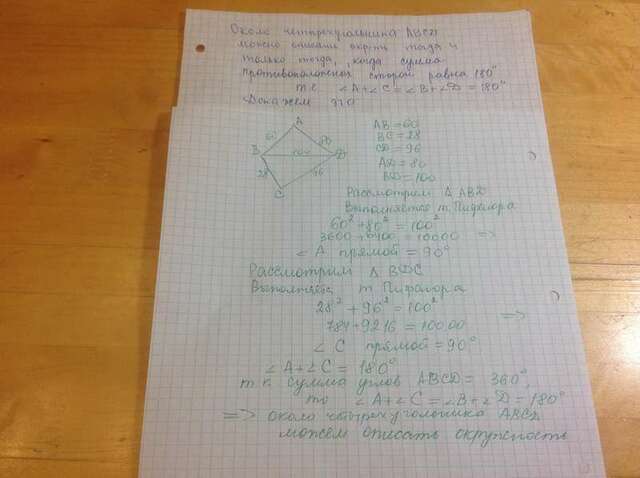 Около четырехугольника ABCD
можно описать окр-ть тогда и
только тогда, когда сумма
противоположных сторон равна 180°
т.е. ∠A+∠C=∠B+∠D=180°
Докажем это
A
60
80
B
100
D
28
96
C
AB=60
BC=28
CD=96
AD=80
BD=100
Рассмотрим △ ABD
Выполняется т. Пифагора
60²+80²=100²
3600+6400=10000 =>
∠ A прямой = 90°
Рассмотрим △ BDC
Выполняется т Пифагора
28²+96²=100²
784+9216=10000 =>
∠ C прямой=90°
∠A+∠C=180°
т.к сумма углов ABCD = 360°,
то ∠A+∠C=∠B+∠D=180°
=> около четырехугольника ABCD
можем описать окружность